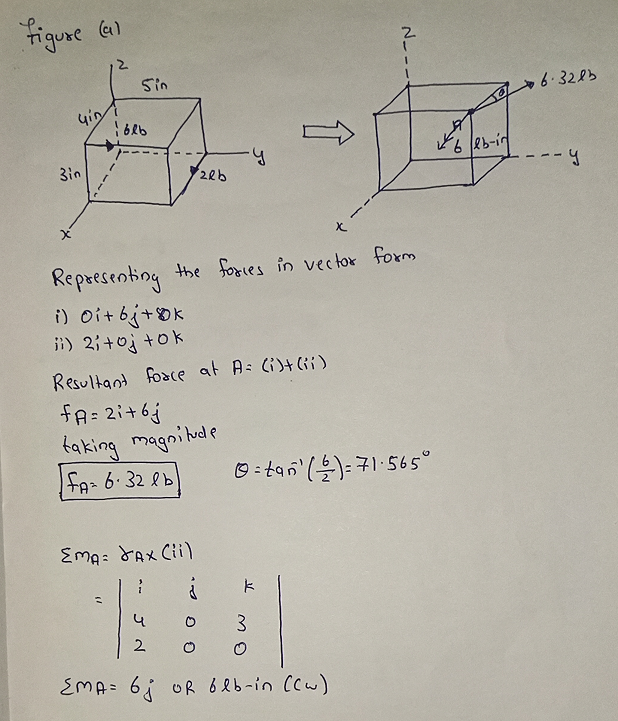 Figure (a)
z
5in
4in
6lb
y
3in
2lb
x
z
θ
6.32lb
A
6 lb-in
y
x
Representing the forces in vector form
i) 0i+6j+0k
ii) 2i+0j+0k
Resultant force at A = (i)+(ii)
fA = 2i+6j
taking magnitude
fA = 6.32 lb
θ = tan⁻¹(6/2) = 71.565°
ΣmA = rA x (ii)
= | i j k |
4 0 3
2 0 0
ΣmA = 6j OR 6lb-in (cw)